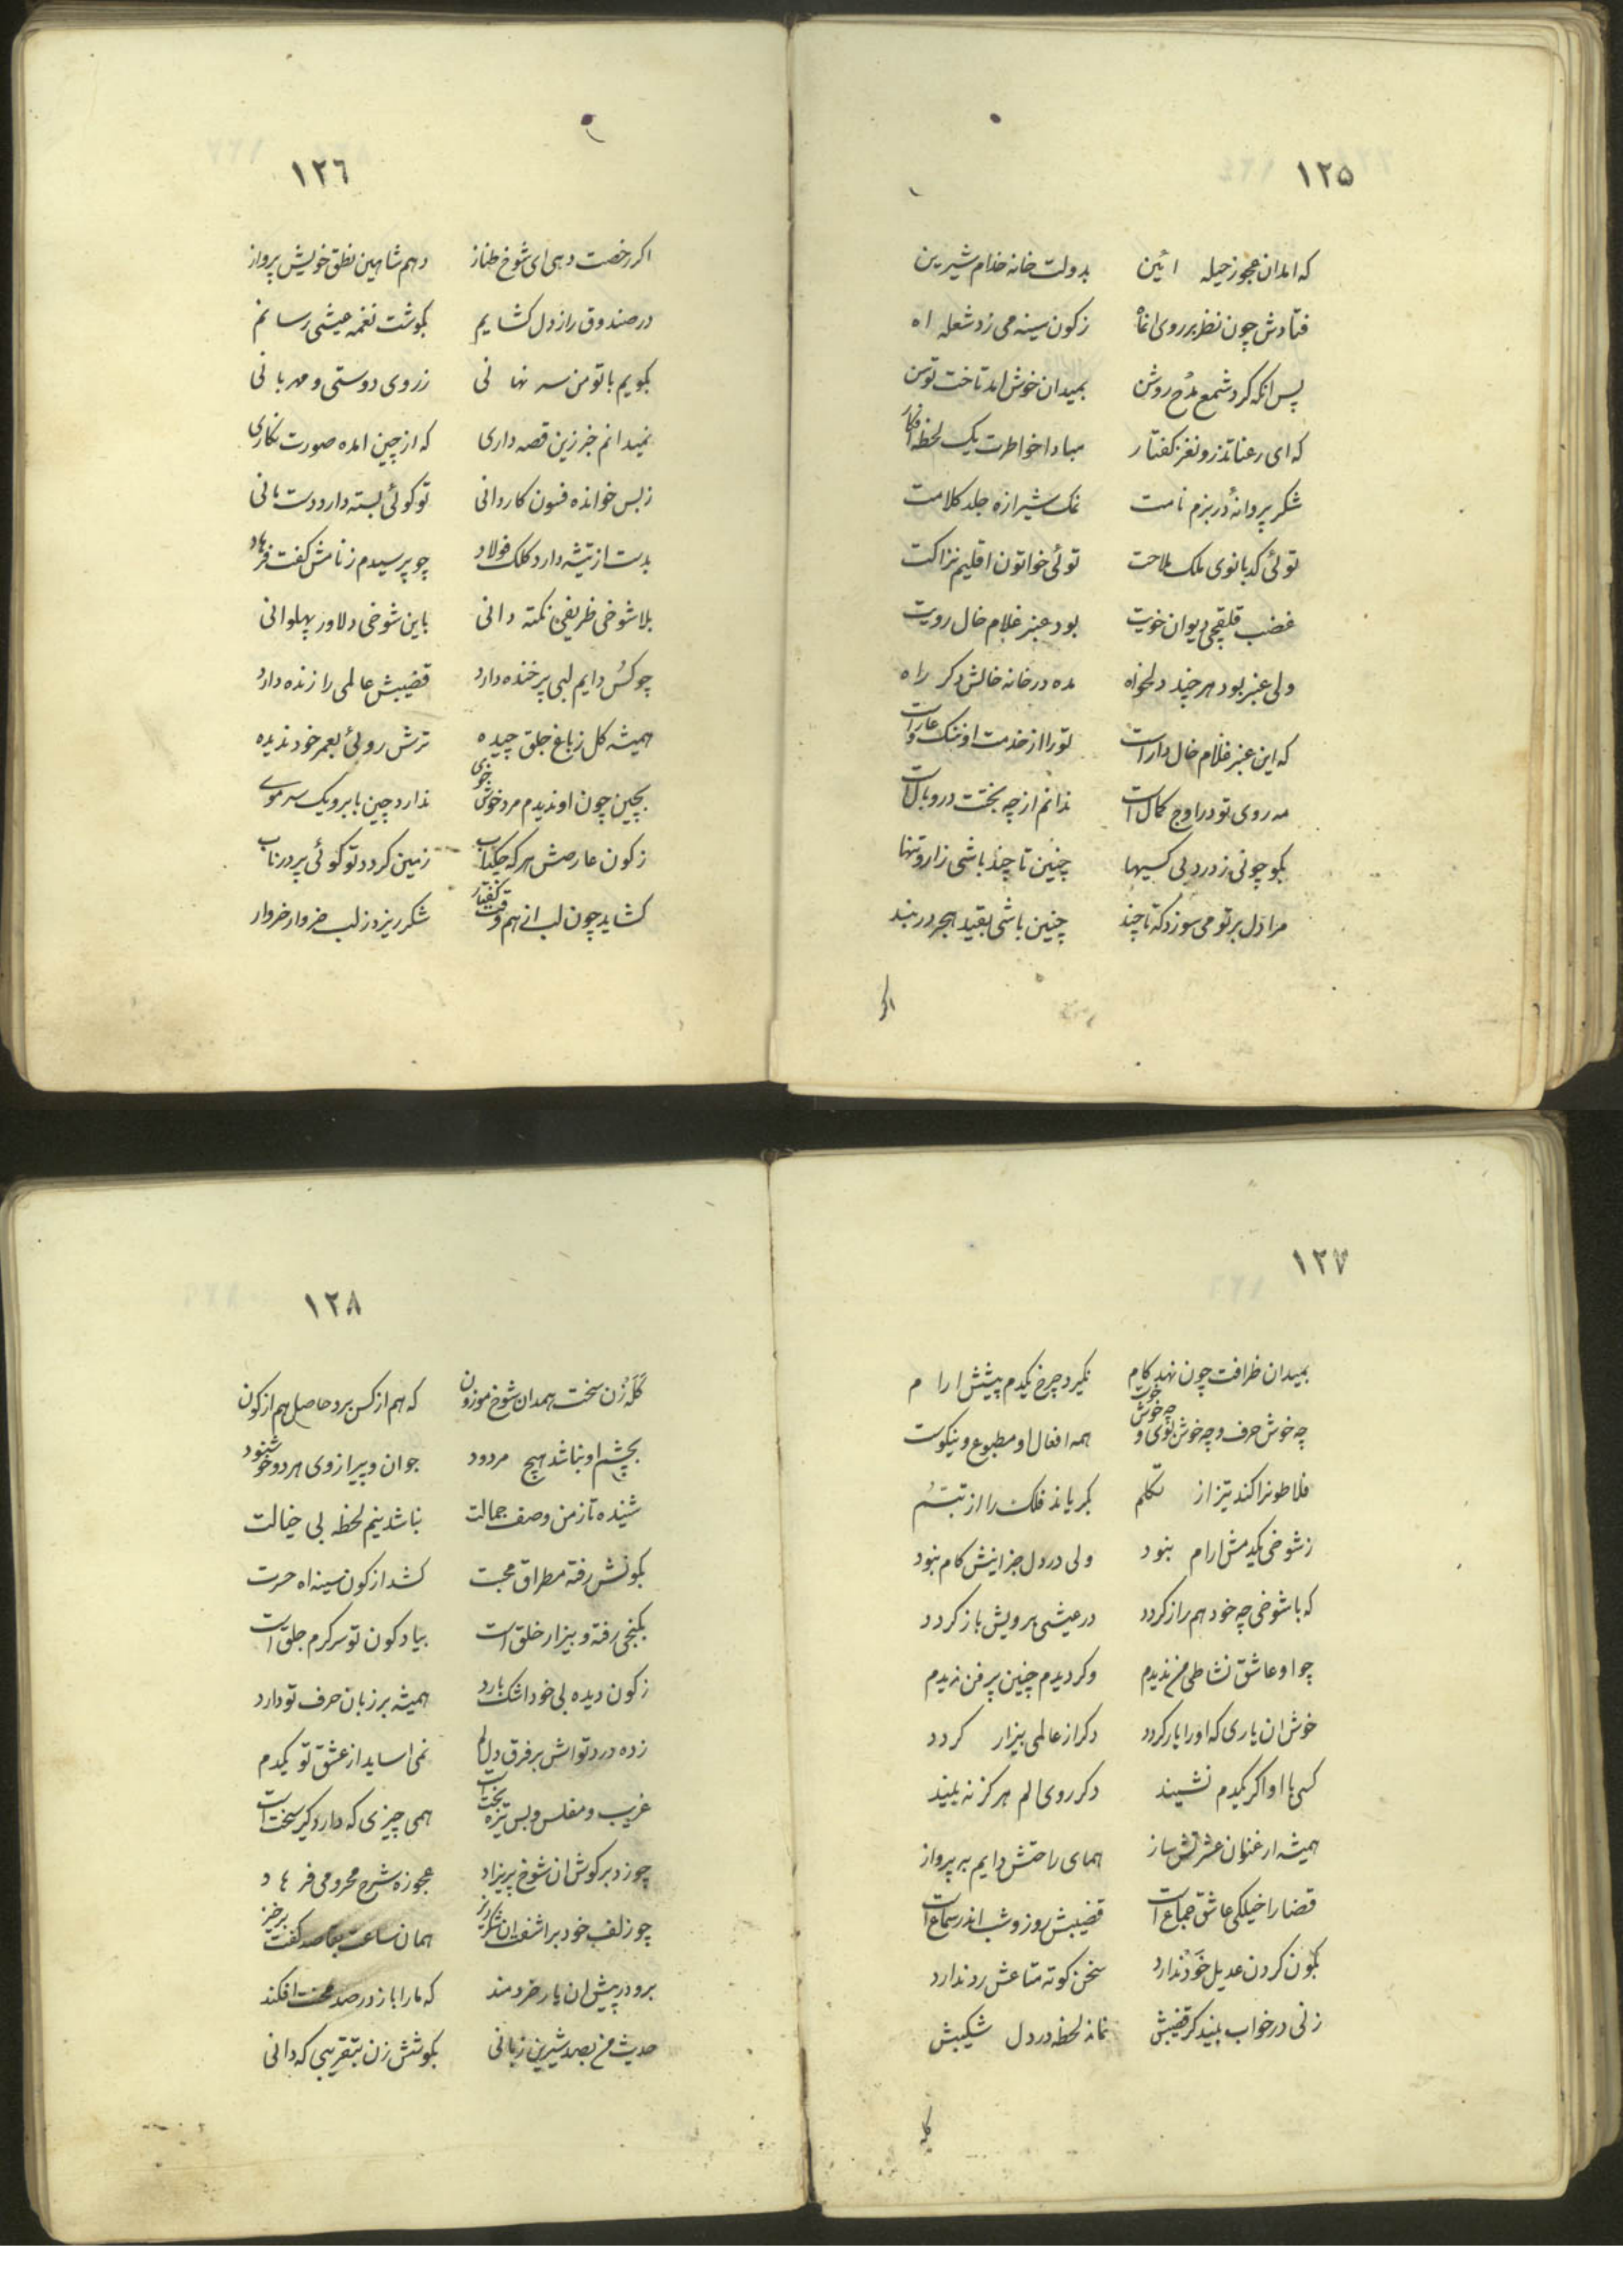 ۱۲۵
که امدان عجوز حیله ائین بدولت خانه خدام شیرین
فتادش چون نظر بر روی انماه زکون سینه می زد شعله اه
پس انکه کرد شمع مدح روشن بمیدان خوش امد تاخت توسن
که ای رعنا تذرو نغز کفتار مبادا خاطرت یک لحظه افکار
شکر پروانهٔ در بزم نامت نمک شیرازه جلد کلامت
توئی کدبانوی ملک ملاحت توئی خواتون اقلیم نزاکت
غضب قلقچی دیوان خویت بود عنبر غلام خال رویت
ولی عنبر بود هر چند دلخواه مده در خانه خالش دکر راه
که این عنبر غلام خال داراست تو را از خدمت او ننک و عاراست
مه روی تو در اوج کمال است ندانم از چه بختت در وبال است
بکو چونی ز درد بی کسیها چنین تا چند باشی زار و تنها
مرا دل بر تو می سوزد که تا چند چنین باشی بقید هجر در بند
اکر
۱۲۶
اکر رخصت دهی ای شوخ طناز دهم شاهین نطق خویش پرواز
در صندوق راز دل کشایم بکوشت نغمه عیشی رسانم
بکویم با تو من سر نهانی ز روی دوستی و مهربانی
نمیدانم خبر زین قصه داری که از چین امده صورت نکاری
ز بس خوانده فسون کاردانی تو کوئی بسته دارد دست مانی
بدست از تیشه دارد کلک فولاد چو پرسیدم ز نامش کفت فرهاد
بلا شوخی ظریفی نکته دانی باین شوخی دلاور پهلوانی
چو کس دایم لبی پر خنده دارد قضیبش عالمی را زنده دارد
همیشه کل ز باغ جلق چیده ترش روئی بعمر خود ندیده
بچین چون او ندیدم مرد خوش خوی ندارد چین بابرو یک سر موی
ز کون عارضش هر که چکد اب زمین کردد تو کوئی پر در ناب
کشاید چون لب از هم وقت کفتار شکر ریزد ز لب خروار خروار
۱۲۷
بمیدان ظرافت چون نهد کام نکیرد چرخ یکدم پیشش ارام
چه خوش حرف و چه خوش لوی و چه خوش خوست همه افعال او مطبوع و نیکوست
فلاطونرا کند تیز از تکلم بکریاند فلک را از تبسم
ز شوخی یکدمش ارام نبود ولی در دل جز اینش کام نبود
که با شوخی چه خود همراز کردد در عیشی برویش باز کردد
چو او عاشق نشاطی من ندیدم وکر دیدم چنین پر فن ندیدم
خوش ان یاری که او را یار کردد دکر از عالمی بیزار کردد
کسی با او اکر یکدم نشیند دکر روی الم هرکز نه بیند
همیشه ارغنون عشرتش ساز همای راحتش دایم به پرواز
قضا را خیلکی عاشق جماع است قضیبش روز و شب اندر سماع است
بکون کردن عدیل خود ندارد سخن کوته متاعش رد ندارد
زنی در خواب بیند کر قضیبش نماند لحظه در دل شکیبش
کله
۱۲۸
کله زن سخت همدان شوخ موزون که هم از کس برد حاصل هم از کون
بچشم او نباشد هیچ مردود جوان و پیر از وی هر دو خوشنود
شنیده تا ز من وصف جمالت نباشد نیم لحظه بی خیالت
بکونش رفته مطراق محبت کشد از کون سینه اه حسرت
بکنجی رفته و بیزار خلق است بیاد کون تو سرکرم جلق است
ز کون دیده بی خود اشک بارد همیشه بر زبان حرف تو دارد
زده درد تو اتش بر فرق دل نمی اساید از عشق تو یکدم
غریب و مفلس و بس تیره بخت است همی چیزی که دارد کیر سخت است
چو زد بر کوش ان شوخ پریزاد عجوزه شرح محرومی فرهاد
چو زلف خود براشفت ان شکرریز همان ساعت بقاصد کفت برخیز
برو در پیش ان یار خردمند که ما را باز در صد محنت افکند
حدیث من بصد شیرین زبانی بکوشش زن بتقریبی که دانی